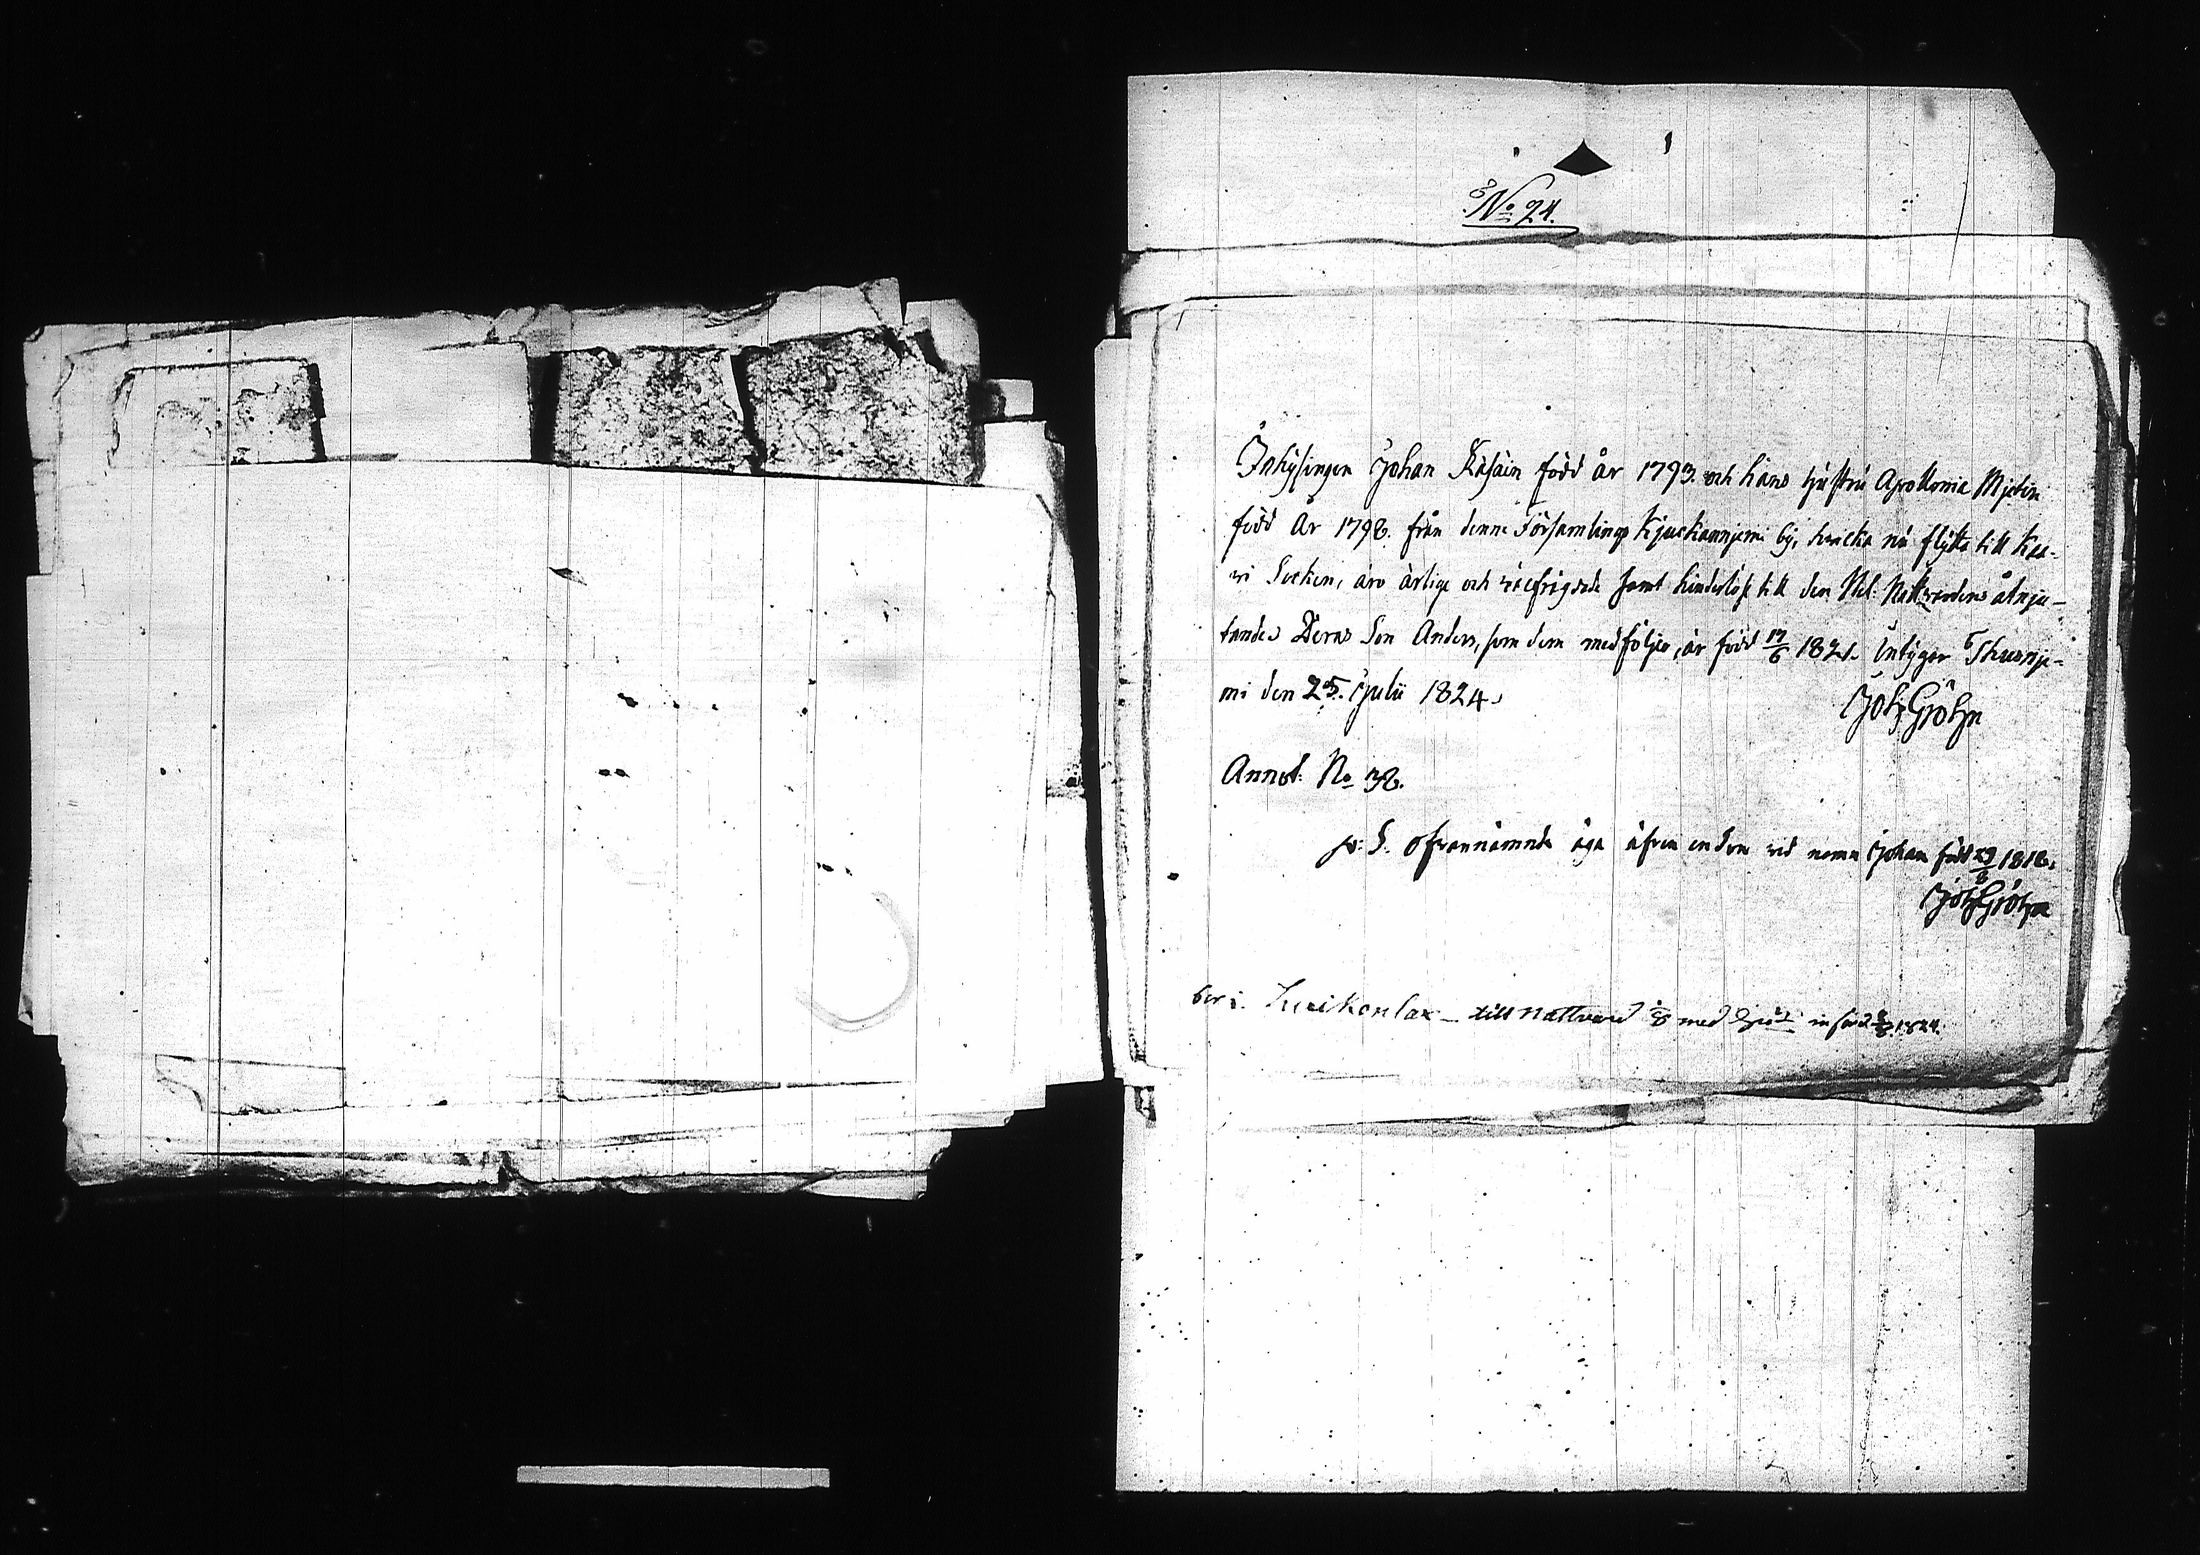 No 24.
Inhysingen Johan Räsäin född år 1793. och hans hustru Apollonia Mjetin
född År 1798. från denne Församlings Kjuckannjemi by, hvicka nu flytta till Kaa-
vi Socken, äro ärlige och välfrägdade samt hinderlöse till den Hel: Nattvardens åtnju-
tande. Deras Son Anders, som dem medföljer, är född 17/6 1821. Intygar Thusnje-
mi den 25. Julii 1824.
Joh: Gröhn
Annot: No 38.
P: S. ofvannämnde äga äfven en Son vid namn Johan född 29/8 1818.
Joh: Gröhn
bor i till nattvard med införd 1824.